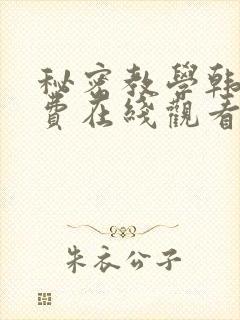 秘密教學韩
費在綫觀看
朱衣公子